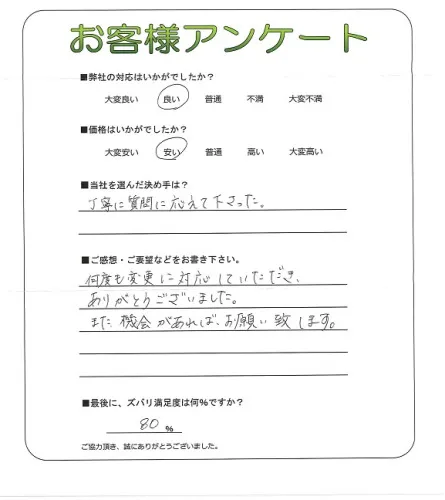 お客様アンケート
■弊社の対応はいかがでしたか？
大変良い 良い 普通 不満 大変不満
■価格はいかがでしたか？
大変安い 安い 普通 高い 大変高い
■当社を選んだ決め手は？
丁寧に質問に応えて下さった。
■ご感想・ご要望などをお書き下さい。
何度も変更に対応していただき、
ありがとうございました。
また機会があれば、お願い致します。
■最後に、ズバリ満足度は何%ですか？
80 %
ご協力頂き、誠にありがとうございました。